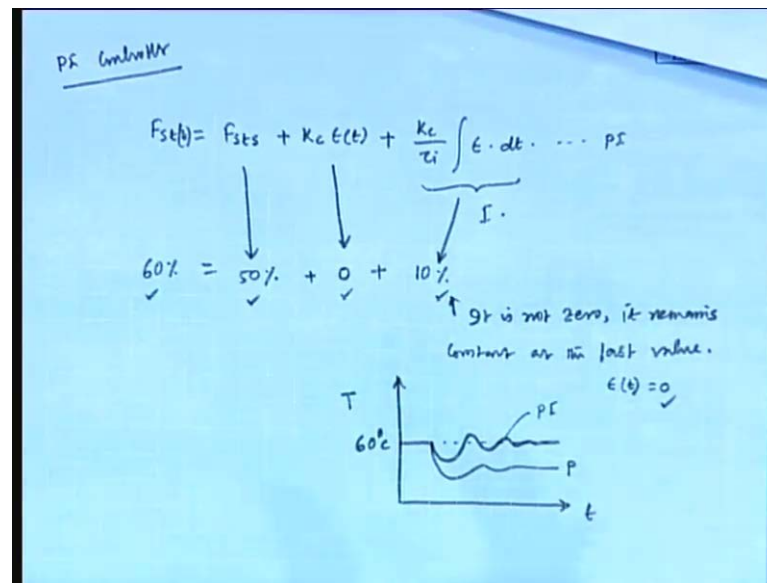 PI Controller
Fst(t) = Fsts + Kc ε(t) + Kc/τi ∫ ε · dt · ··· PI
I.
60% = 50% + 0 + 10%
It is not zero, it remains
constant as its last value.
ε(t) = 0
T
PI
60°c
P
t